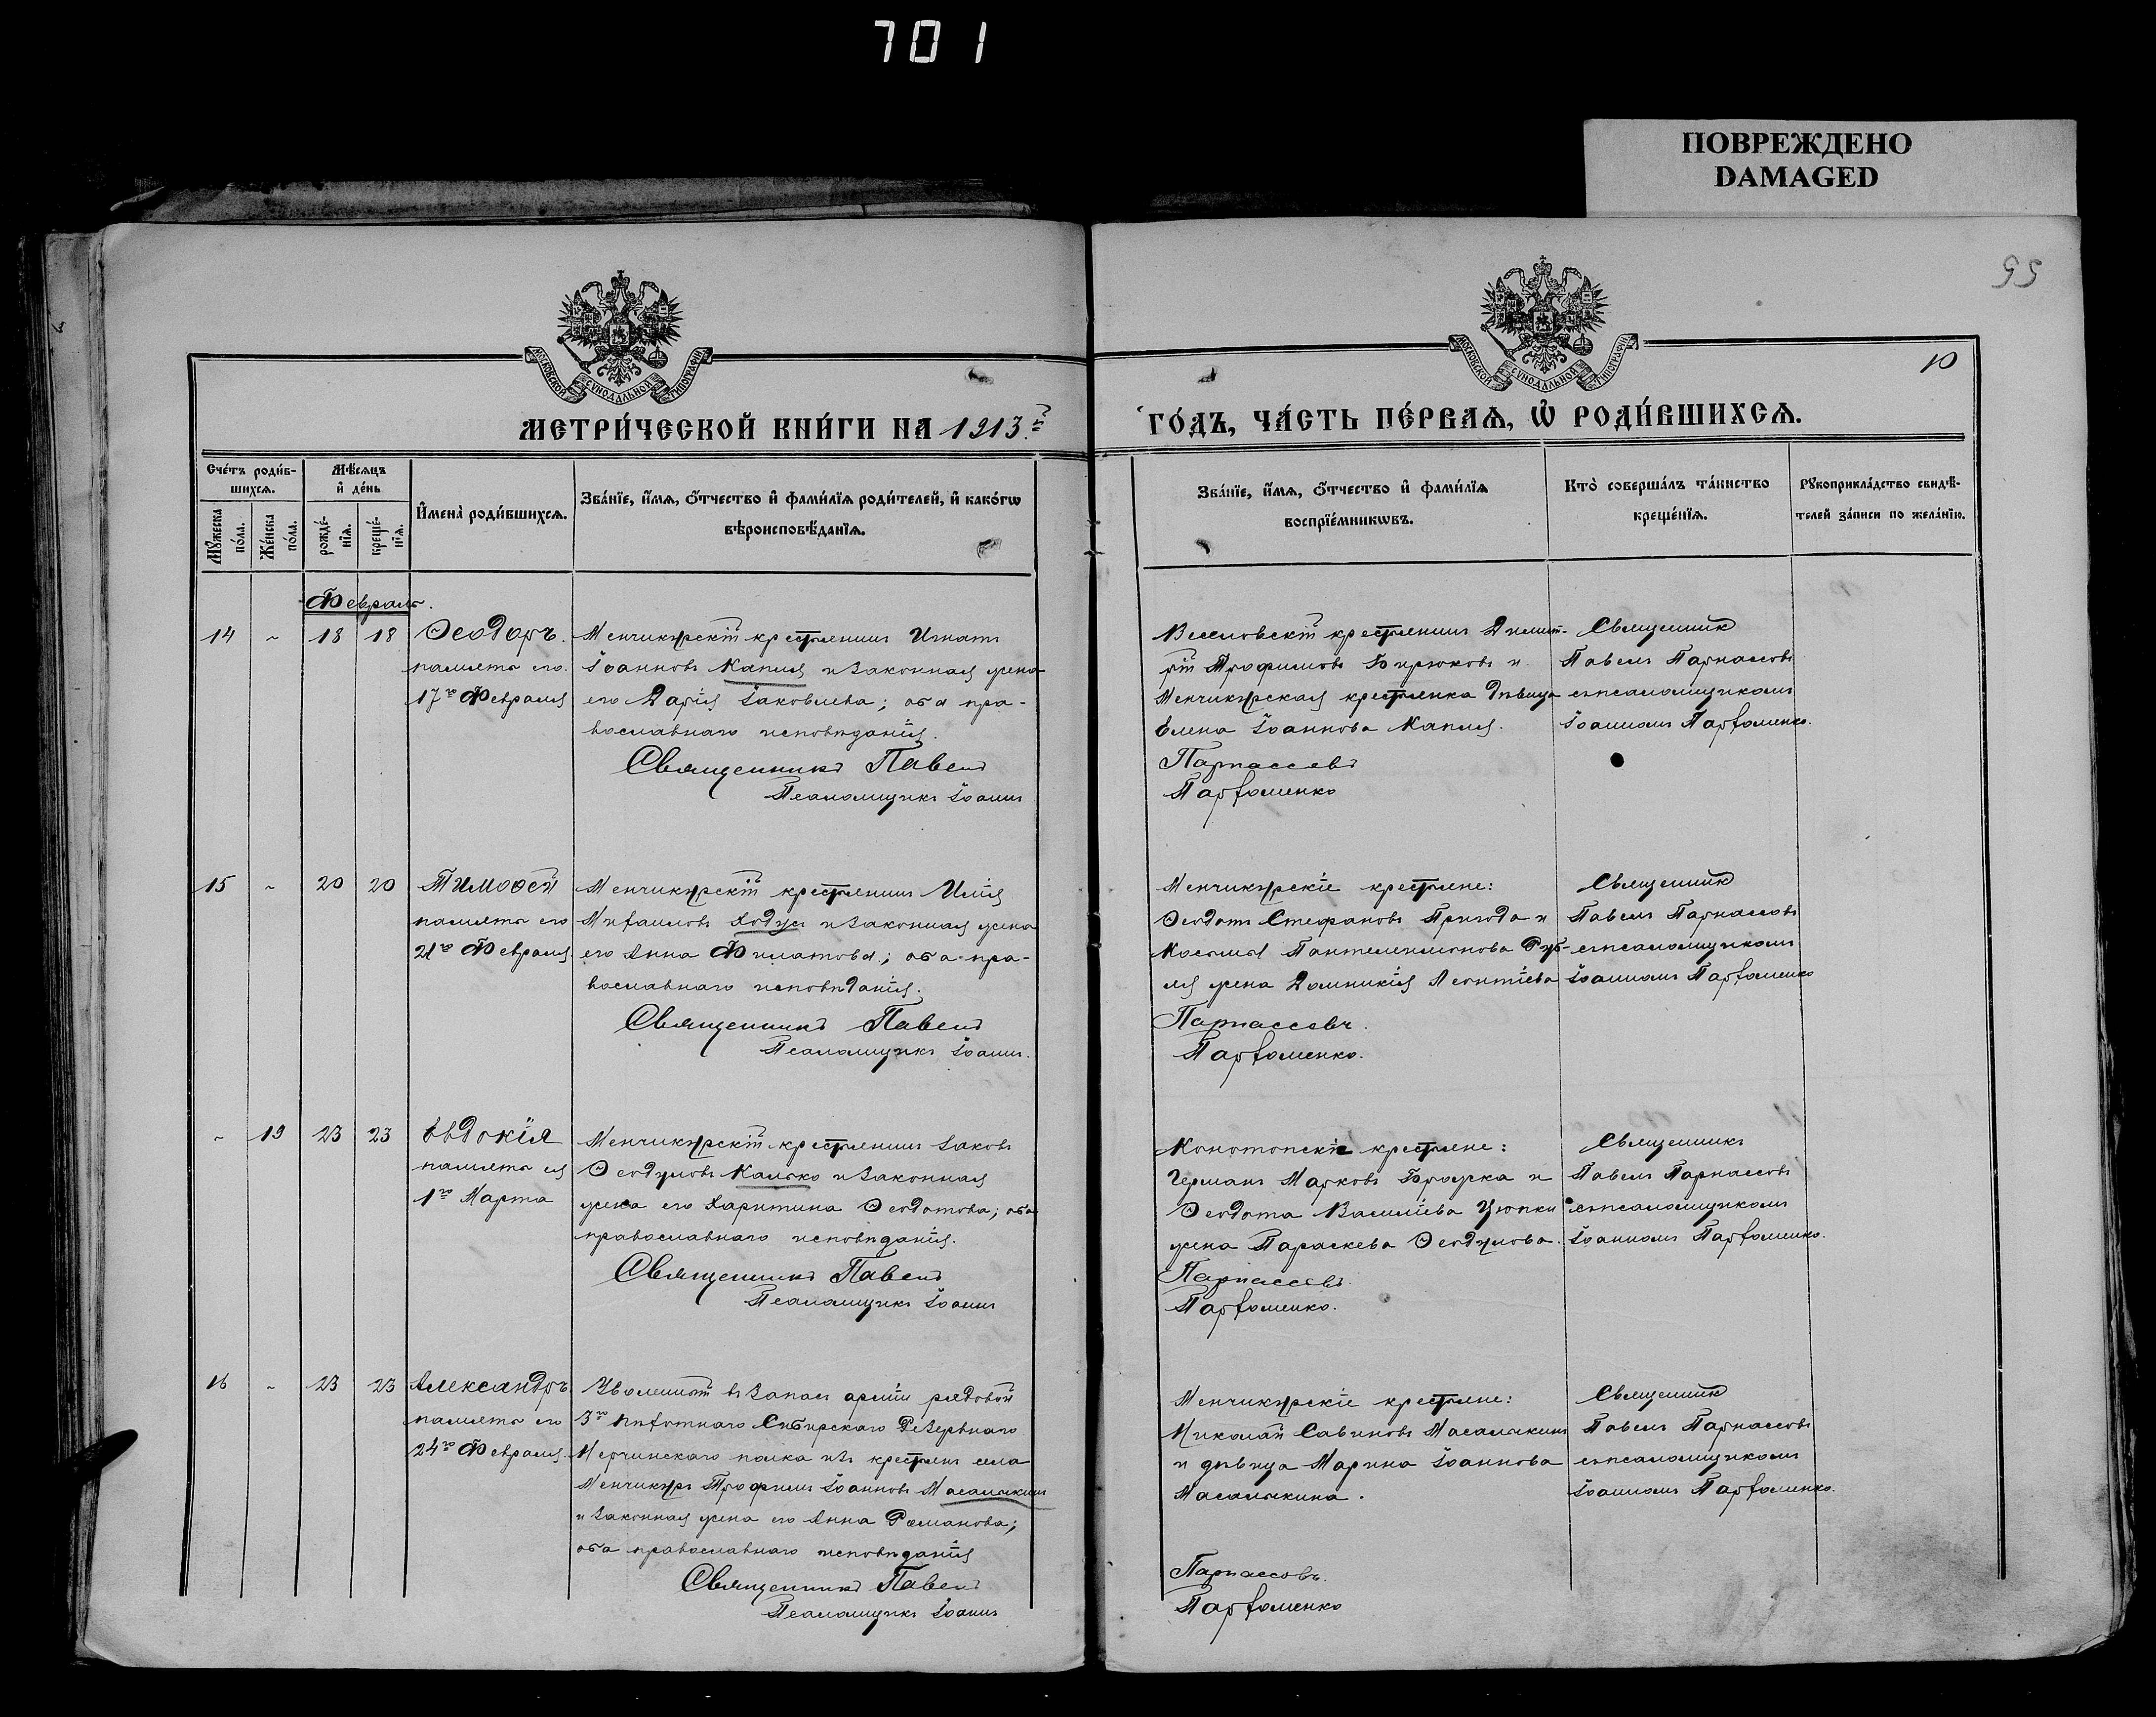 701
ПОВРЕЖДЕНО
DAMAGED
95
10
МОСКОВСКОЙ СѴНОДАЛЬНОЙ ТИПОГРАФИИ
МОСКОВСКОЙ СѴНОДАЛЬНОЙ ТИПОГРАФИИ
МЕТРИ́ЧЕСКОЙ КНИ́ГИ НА 1913й
ГО́ДЪ, ЧА́СТЬ ПЕ́РВАѦ, Ѡ҆ РОДИ́ВШИХСѦ.
Сче́тъ роди́в-
шихсѧ.
Мꙋ́жеска по́ла.
Же́нска по́ла.
Мѣ́сѧцъ
и҆ де́нь
рожде́-
нїѧ.
креще́-
нїѧ.
И҆мена̀ роди́вшихсѧ.
Зва́нїе, и҆́мѧ, ѻ҆́тчество и҆ фами́лїѧ роди́телей, и҆ како́гѡ
вѣроисповѣ́данїѧ.
Зва́нїе, и҆́мѧ, ѻ҆́тчество и҆ фами́лїѧ
воспрїе́мникѡвъ.
Кто̀ соверша́лъ та́инство
креще́нїѧ.
Рꙋкоприкла́дство свидѣ́-
телей за́писи по жела́нїю.
Февраль.
14 ~ 18 18
Ѳеодоръ.
память его
17го Февраля
Менчикурскій крестьянинъ Игнатъ
Іоанновъ Капля и законная жена
его Дарія Іаковлева; оба пра-
вославнаго исповѣданія.
Священникъ Павелъ
Псаломщикъ Іоаннъ
Веселовскій крестьянинъ Димит-
рій Трофимовъ Бирюковъ и
Менчикурская крестьянка дѣвица
Елена Іоаннова Капля.
Парнассовъ
Парфоменко
Священникъ
Павелъ Парнассовъ
съ псаломщикомъ
Іоанномъ Парфоменко.
15 ~ 20 20
Тимоѳей
память его
21го Февраля.
Менчикурскій крестьянинъ Илія
Михаиловъ Ходусъ и законная жена
его Анна Филатова; оба пра-
вославнаго исповѣданія.
Священникъ Павелъ
Псаломщикъ Іоаннъ.
Менчикурскіе крестьяне:
Ѳеодотъ Стефановъ Пригода и
Космы Пантелеимонова Руб-
ля жена Домникія Леонтіева
Парнассовъ.
Парфоменко.
Священникъ
Павелъ Парнассовъ
съ псаломщикомъ
Іоанномъ Парфоменко
~ 19 23 23
Евдокія
память ея
1го Марта
Менчикурскій крестьянинъ Іаковъ
Ѳеодуловъ Калько и законная
жена его Харитина Ѳеодотова; оба
православнаго исповѣданія.
Священникъ Павелъ
Псаломщикъ Іоаннъ
Конотопскіе крестьяне:
Германъ Марковъ Бражка и
Ѳеодота Василіева Цюпки
жена Параскева Ѳеодулова.
Парнассовъ.
Парфоменко.
Священникъ
Павелъ Парнассовъ
съ псаломщикомъ
Іоанномъ Парфоменко.
16 ~ 23 23
Александръ
память его
24го Февраля.
Уволенный въ запасъ арміи рядовой
3го пѣхотнаго Сибирскаго Резервнаго
Нерчинскаго полка изъ крестьянъ села
Менчикуръ Трофимъ Іоанновъ Масалыкинъ
и законная жена его Анна Романова;
оба православнаго исповѣданія
Священникъ Павелъ
Псаломщикъ Іоаннъ
Менчикурскіе крестьяне:
Николай Савиновъ Масалыкинъ
и дѣвица Марина Іоаннова
Масалыкина.
Парнассовъ.
Парфоменко
Священникъ
Павелъ Парнассовъ
съ псаломщикомъ
Іоанномъ Парфоменко.